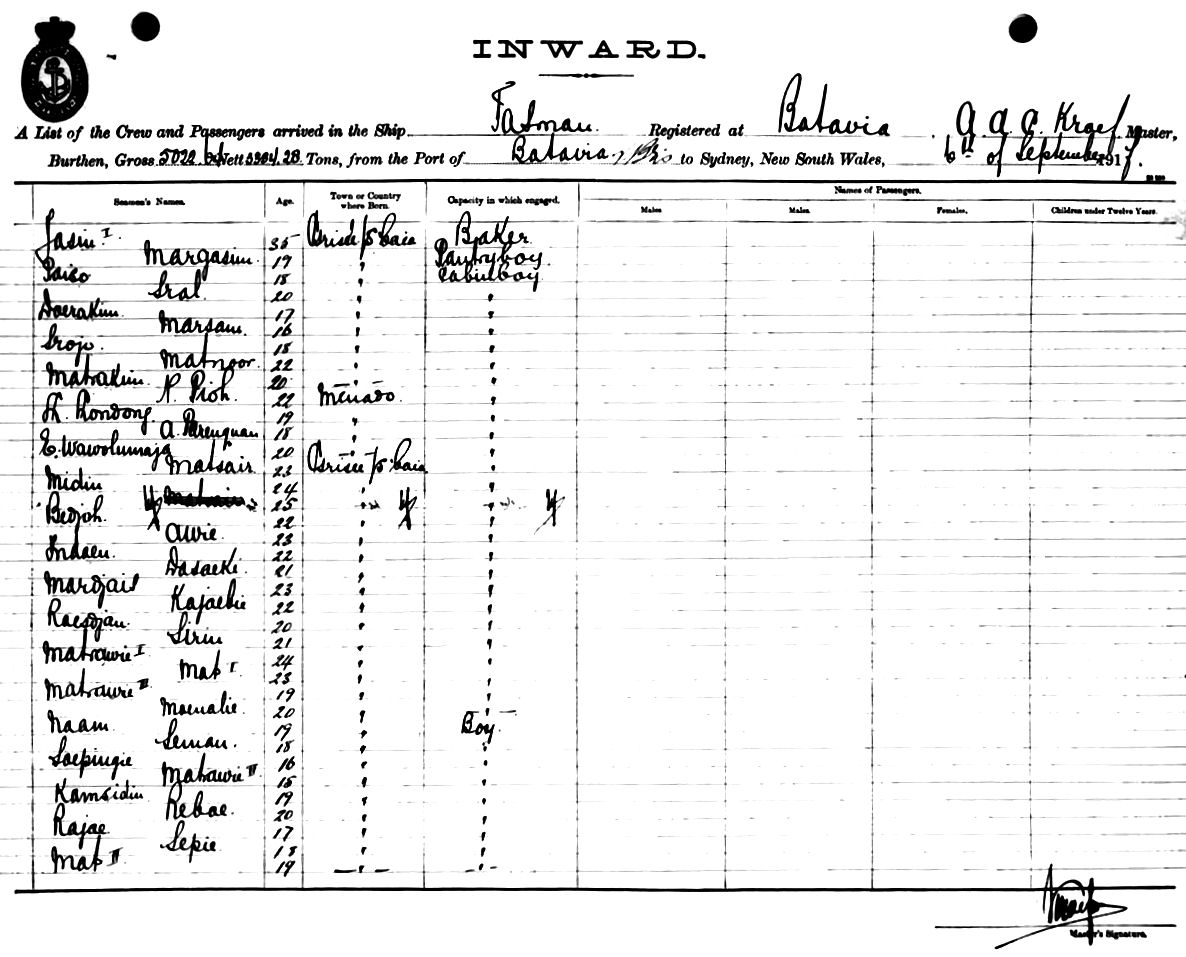 INWARD.
A List of the Crew and Passengers arrived in the Ship Tasman. Registered at Batavia. A. A. C. Master,
Burthen, Gross 5022 Nett Tons, from the Port of Batavia to Sydney, New South Wales, 6th of September 1917.
Seamen's Names. Age. Town or Country where Born. Capacity in which engaged. Names of Passengers.
Males Males. Females. Children under Twelve Years.
Jasin I 35 Baker
Margasim 19 " Pantryboy
Paiso 18 " Cabinboy
Sral 20 " "
Doerakim 17 " "
Marsam 16 " "
Srojo 18 " "
Matnoor 22 " "
Matrakim 20 " "
P. Pioh 22 Menado "
Th. Rondong 19 " "
A. 18 " "
E. Wawolumaja 20 " "
Matsair 23 "
Midin 24 " "
25 " "
Bedjoh 22 " "
Awie 23 " "
Indaen 22 " "
Dasaeki 21 " "
Mardjais 23 " "
Kajaebie 22 " "
Raesdjan 20 " "
Sirin 21 " "
Matrawie I 24 " "
Mat I 23 " "
Matrawie II 19 " "
Moenalie 20 " "
Naam 19 " Boy
Seman 18 " "
Soepingie 16 " "
Matrawie III 15 " "
Kamsidin 19 " "
Rebae 20 " "
Rajae 17 " "
Sepie 18 " "
Mat II 19 " "
Master's Signature.